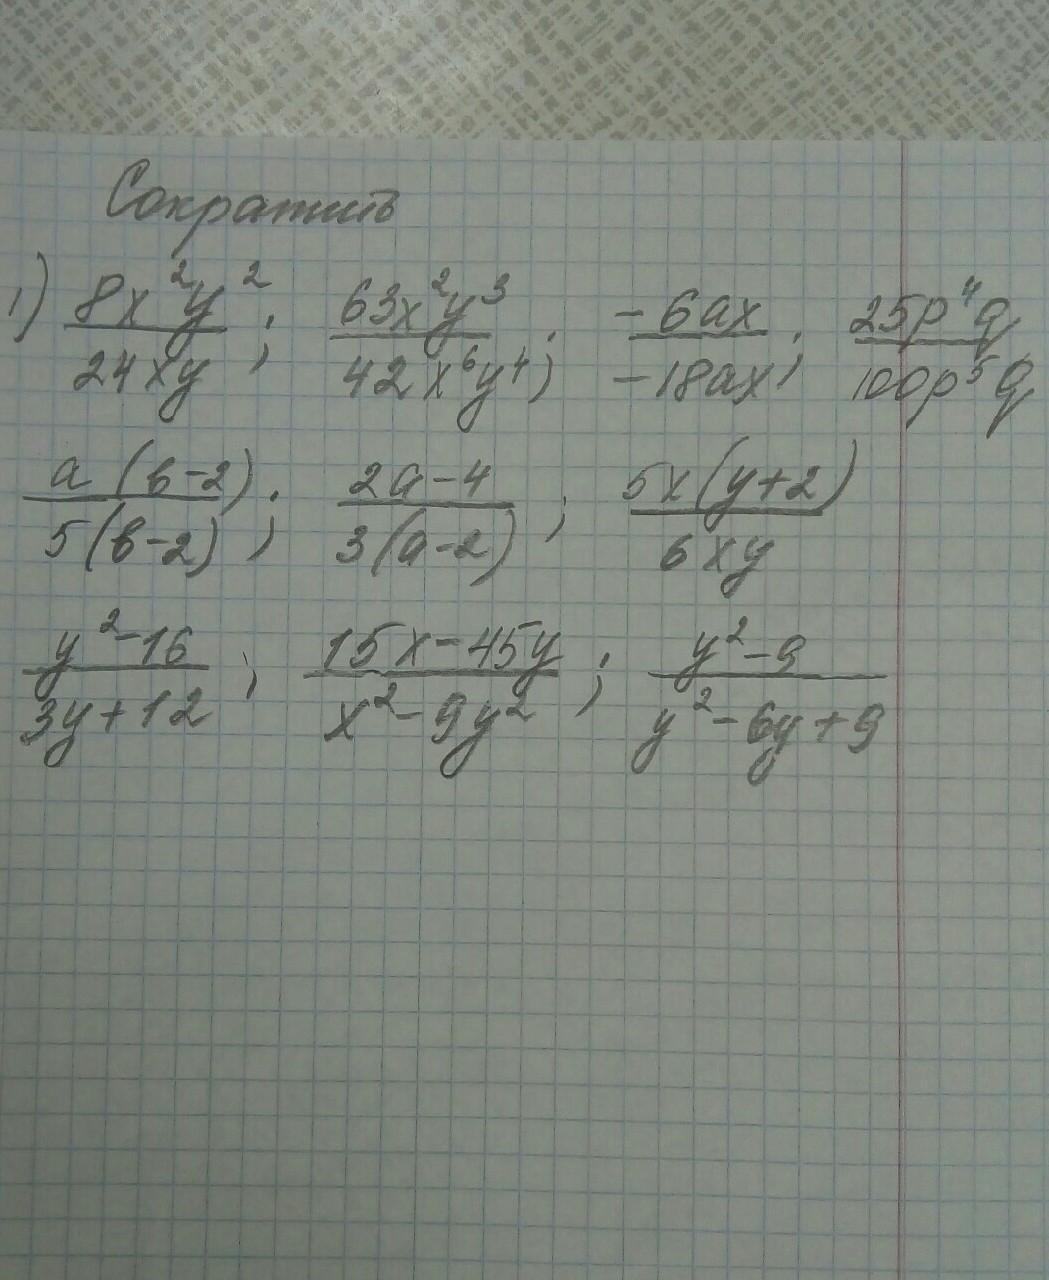 Сократить
1) 8x²y²/24xy ; 63x²y³/42x⁶y⁴ ; -6ax/-18ax ; 25p⁴q/100p⁵q
a(b-2)/5(b-2) ; 2a-4/3(a-2) ; 5x(y+2)/6xy
y²-16/3y+12 ; 15x-45y/x²-9y² ; y²-9/y²-6y+9